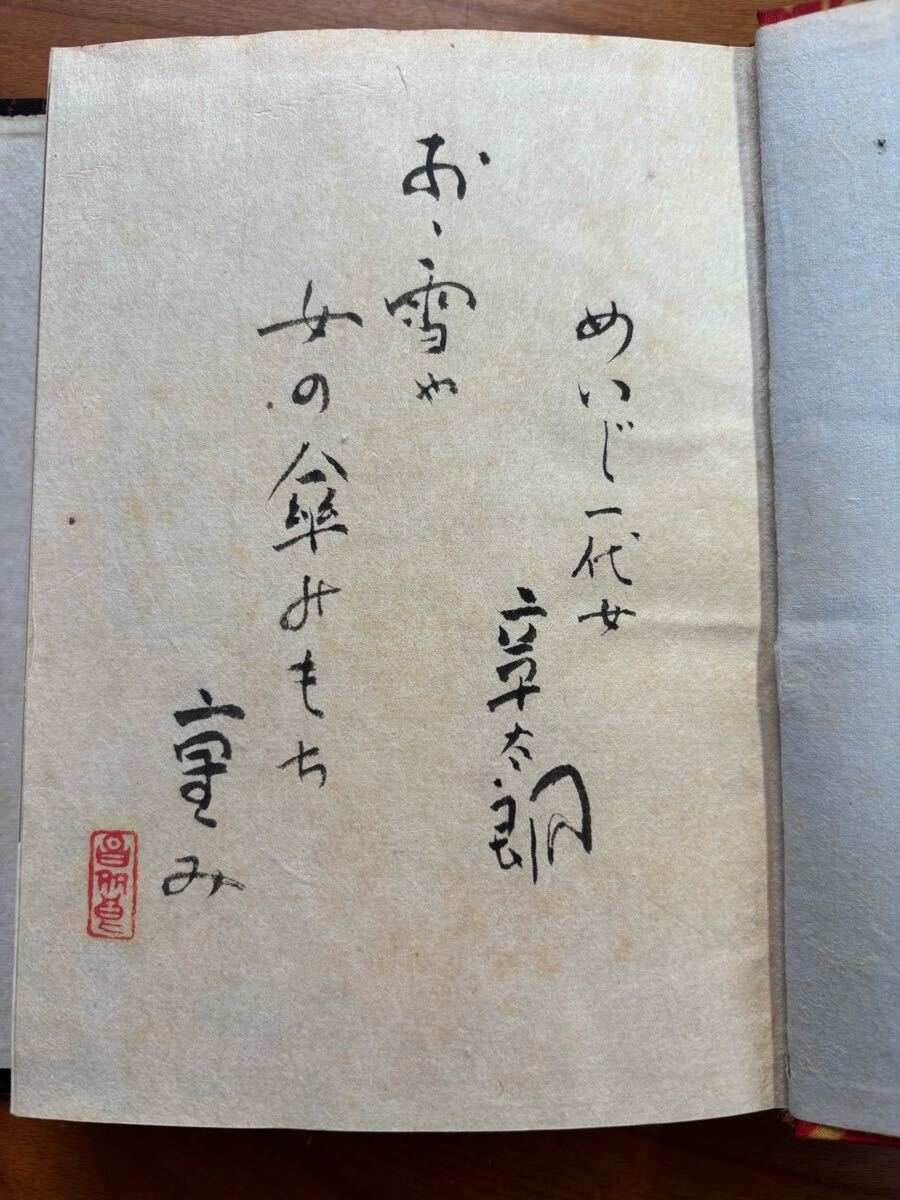 めいじ一代女
章太郎
おゝ雪や
女の傘のもち
重み